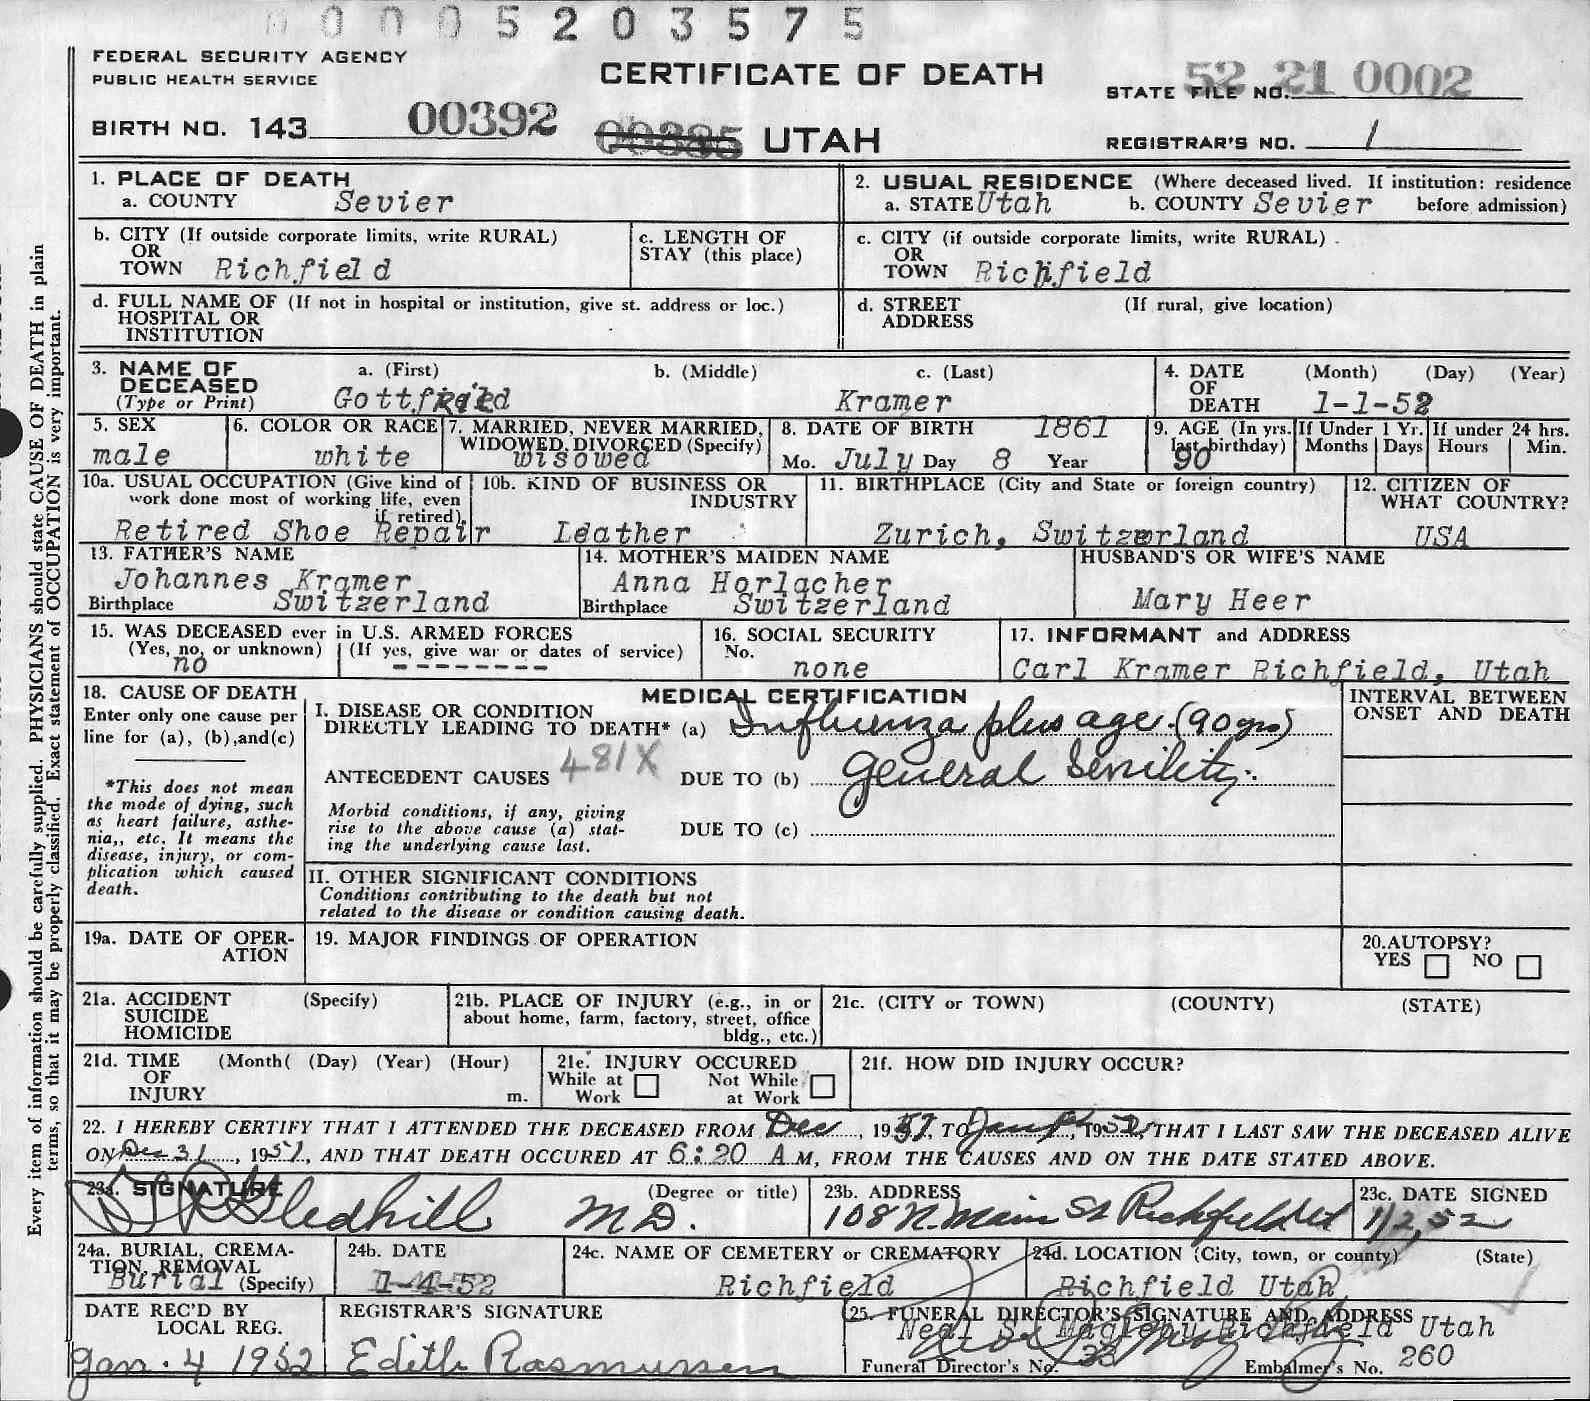 00005203575
FEDERAL SECURITY AGENCY
PUBLIC HEALTH SERVICE
CERTIFICATE OF DEATH
STATE FILE NO. 52 21 0002
BIRTH NO. 143 00392 00385 UTAH
REGISTRAR'S NO. 1
Every item of information should be carefully supplied. PHYSICIANS should state CAUSE OF DEATH in plain
terms, so that it may be properly classified. Exact statement of OCCUPATION is very important.
1. PLACE OF DEATH
a. COUNTY Sevier
2. USUAL RESIDENCE (Where deceased lived. If institution: residence
a. STATE Utah b. COUNTY Sevier before admission)
b. CITY (If outside corporate limits, write RURAL)
OR
TOWN Richfield
c. LENGTH OF
STAY (this place)
c. CITY (if outside corporate limits, write RURAL)
OR
TOWN Richfield
d. FULL NAME OF (If not in hospital or institution, give st. address or loc.)
HOSPITAL OR
INSTITUTION
d. STREET (If rural, give location)
ADDRESS
3. NAME OF a. (First) b. (Middle) c. (Last)
DECEASED
(Type or Print) Gottfried Kramer
4. DATE (Month) (Day) (Year)
OF
DEATH 1-1-52
5. SEX
male
6. COLOR OR RACE
white
7. MARRIED, NEVER MARRIED,
WIDOWED, DIVORCED (Specify)
wisowed
8. DATE OF BIRTH 1861
Mo. July Day 8 Year
9. AGE (In yrs.
last birthday)
90
If Under 1 Yr.
Months Days
If under 24 hrs.
Hours Min.
10a. USUAL OCCUPATION (Give kind of
work done most of working life, even
if retired)
Retired Shoe Repair
10b. KIND OF BUSINESS OR
INDUSTRY
Leather
11. BIRTHPLACE (City and State or foreign country)
Zurich, Switzerland
12. CITIZEN OF
WHAT COUNTRY?
USA
13. FATHER'S NAME
Johannes Kramer
Birthplace Switzerland
14. MOTHER'S MAIDEN NAME
Anna Horlacher
Birthplace Switzerland
HUSBAND'S OR WIFE'S NAME
Mary Heer
15. WAS DECEASED ever in U.S. ARMED FORCES
(Yes, no, or unknown) (If yes, give war or dates of service)
no --------
16. SOCIAL SECURITY
No.
none
17. INFORMANT and ADDRESS
Carl Kramer Richfield, Utah
18. CAUSE OF DEATH
Enter only one cause per
line for (a), (b), and (c)
*This does not mean
the mode of dying, such
as heart failure, asthe-
nia,, etc. It means the
disease, injury, or com-
plication which caused
death.
MEDICAL CERTIFICATION
I. DISEASE OR CONDITION
DIRECTLY LEADING TO DEATH* (a) Influenza plus age (90 yrs)
ANTECEDENT CAUSES 481X DUE TO (b) general Senility
Morbid conditions, if any, giving
rise to the above cause (a) stat-
ing the underlying cause last.
DUE TO (c)
INTERVAL BETWEEN
ONSET AND DEATH
II. OTHER SIGNIFICANT CONDITIONS
Conditions contributing to the death but not
related to the disease or condition causing death.
19a. DATE OF OPER-
ATION
19. MAJOR FINDINGS OF OPERATION
20. AUTOPSY?
YES NO
21a. ACCIDENT (Specify)
SUICIDE
HOMICIDE
21b. PLACE OF INJURY (e.g., in or
about home, farm, factory, street, office
bldg., etc.)
21c. (CITY or TOWN) (COUNTY) (STATE)
21d. TIME (Month( (Day) (Year) (Hour)
OF
INJURY m.
21e. INJURY OCCURED
While at Not While
Work at Work
21f. HOW DID INJURY OCCUR?
22. I HEREBY CERTIFY THAT I ATTENDED THE DECEASED FROM Dec, 1951, TO Jan, 1952, THAT I LAST SAW THE DECEASED ALIVE
ON Dec 31, 1951, AND THAT DEATH OCCURED AT 6:20 A M, FROM THE CAUSES AND ON THE DATE STATED ABOVE.
23a. SIGNATURE (Degree or title)
Gledhill M.D.
23b. ADDRESS
108 N. Main St Richfield Ut
23c. DATE SIGNED
1/2, 52
24a. BURIAL, CREMA-
TION, REMOVAL
Burial (Specify)
24b. DATE
1-4-52
24c. NAME OF CEMETERY or CREMATORY
Richfield
24d. LOCATION (City, town, or county) (State)
Richfield Utah
DATE REC'D BY
LOCAL REG.
Jan. 4 1952
REGISTRAR'S SIGNATURE
Edith Rasmussen
25. FUNERAL DIRECTOR'S SIGNATURE AND ADDRESS
Neal S. Magleby Richfield Utah
Funeral Director's No. 33 Embalmer's No. 260